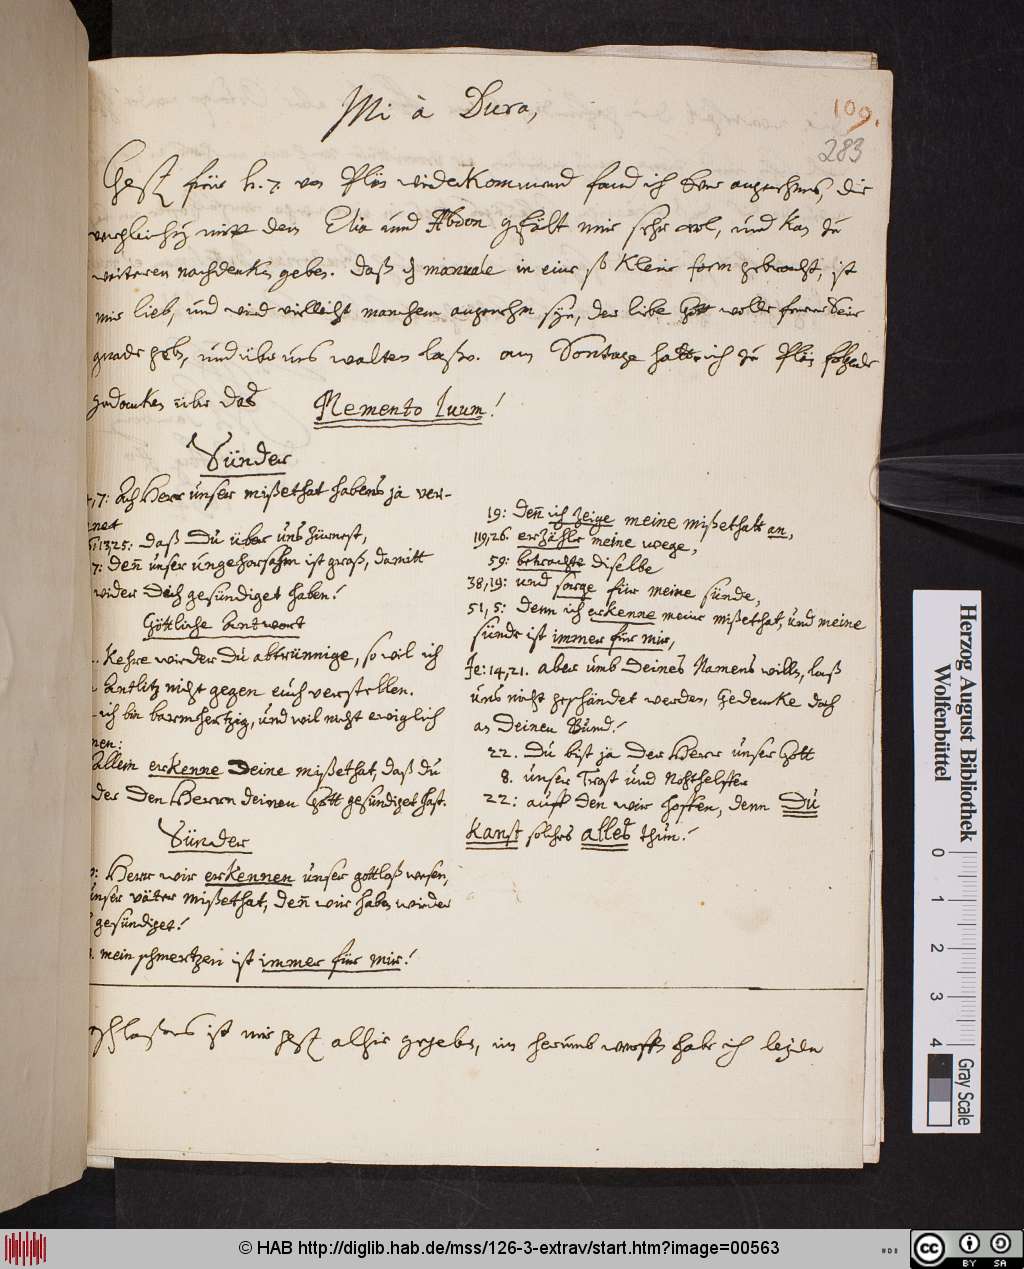 Mi à Dura,
109.
283
Gest früe h. 7 von Plön widerkommend fand ich Ihr angenehmes, die
vergleichung mitt dem Elia und Abdon gefält mir sehr wol, und kan zu
weiteren nachdenken geben. Daß manuale in eine so kleine form gebracht, ist
mir lieb, und wird villeicht manchem angenehm sein, der liebe Gott wolle ferner Seine
gnade geben, und über uns walten laßen. am Sontage hatte ich zu Plön folgende
gedancken über das Memento tuum!
Sünder
7: Ach Herr unser mißethat habens ja ver-
net
daß Du über uns zürnest,
7: denn unser ungehorsahm ist groß, damitt
wider Dich gesündiget haben!
Göttliche Antwort
kehre wieder Du abtrünnige, so wil ich
Antlitz nicht gegen euch verstellen.
ich bin barmhertzig, und wil nicht ewiglich
nen:
Allein erkenne Deine mißethat, daß du
der Den Herrn deinen Gott gesündiget hast.
Sünder
Herr wir erkennen unser gottloß wesen,
unser väter mißethat, Denn wir haben wieder
gesündiget!
mein schmertzen ist immer für mir!
19: Denn ich zeige meine mißethatt an,
119,26. erzähle meine wege,
59: betrachte diselbe
38,19: und sorge für meine sünde,
51,5: Denn ich erkenne meine mißethat, und meine
sünde ist immer für mir,
Je: 14,21. aber umb Deines Namens willen, laß
uns nicht geschändet werden, Gedencke doch
an Deinen Bund!
22. Du bist ja Der Herr unser Gott
8. unser Trost und Nohthelffer
22: auff den wir hoffen, denn Du
kanst solches alles thun!
ist mir gest alhir gegeben, im herumb werffen habe ich leyder
Herzog August Bibliothek
Wolfenbüttel
0 1 2 3 4
Gray Scale
© HAB http://diglib.hab.de/mss/126-3-extrav/start.htm?image=00563
cc BY SA